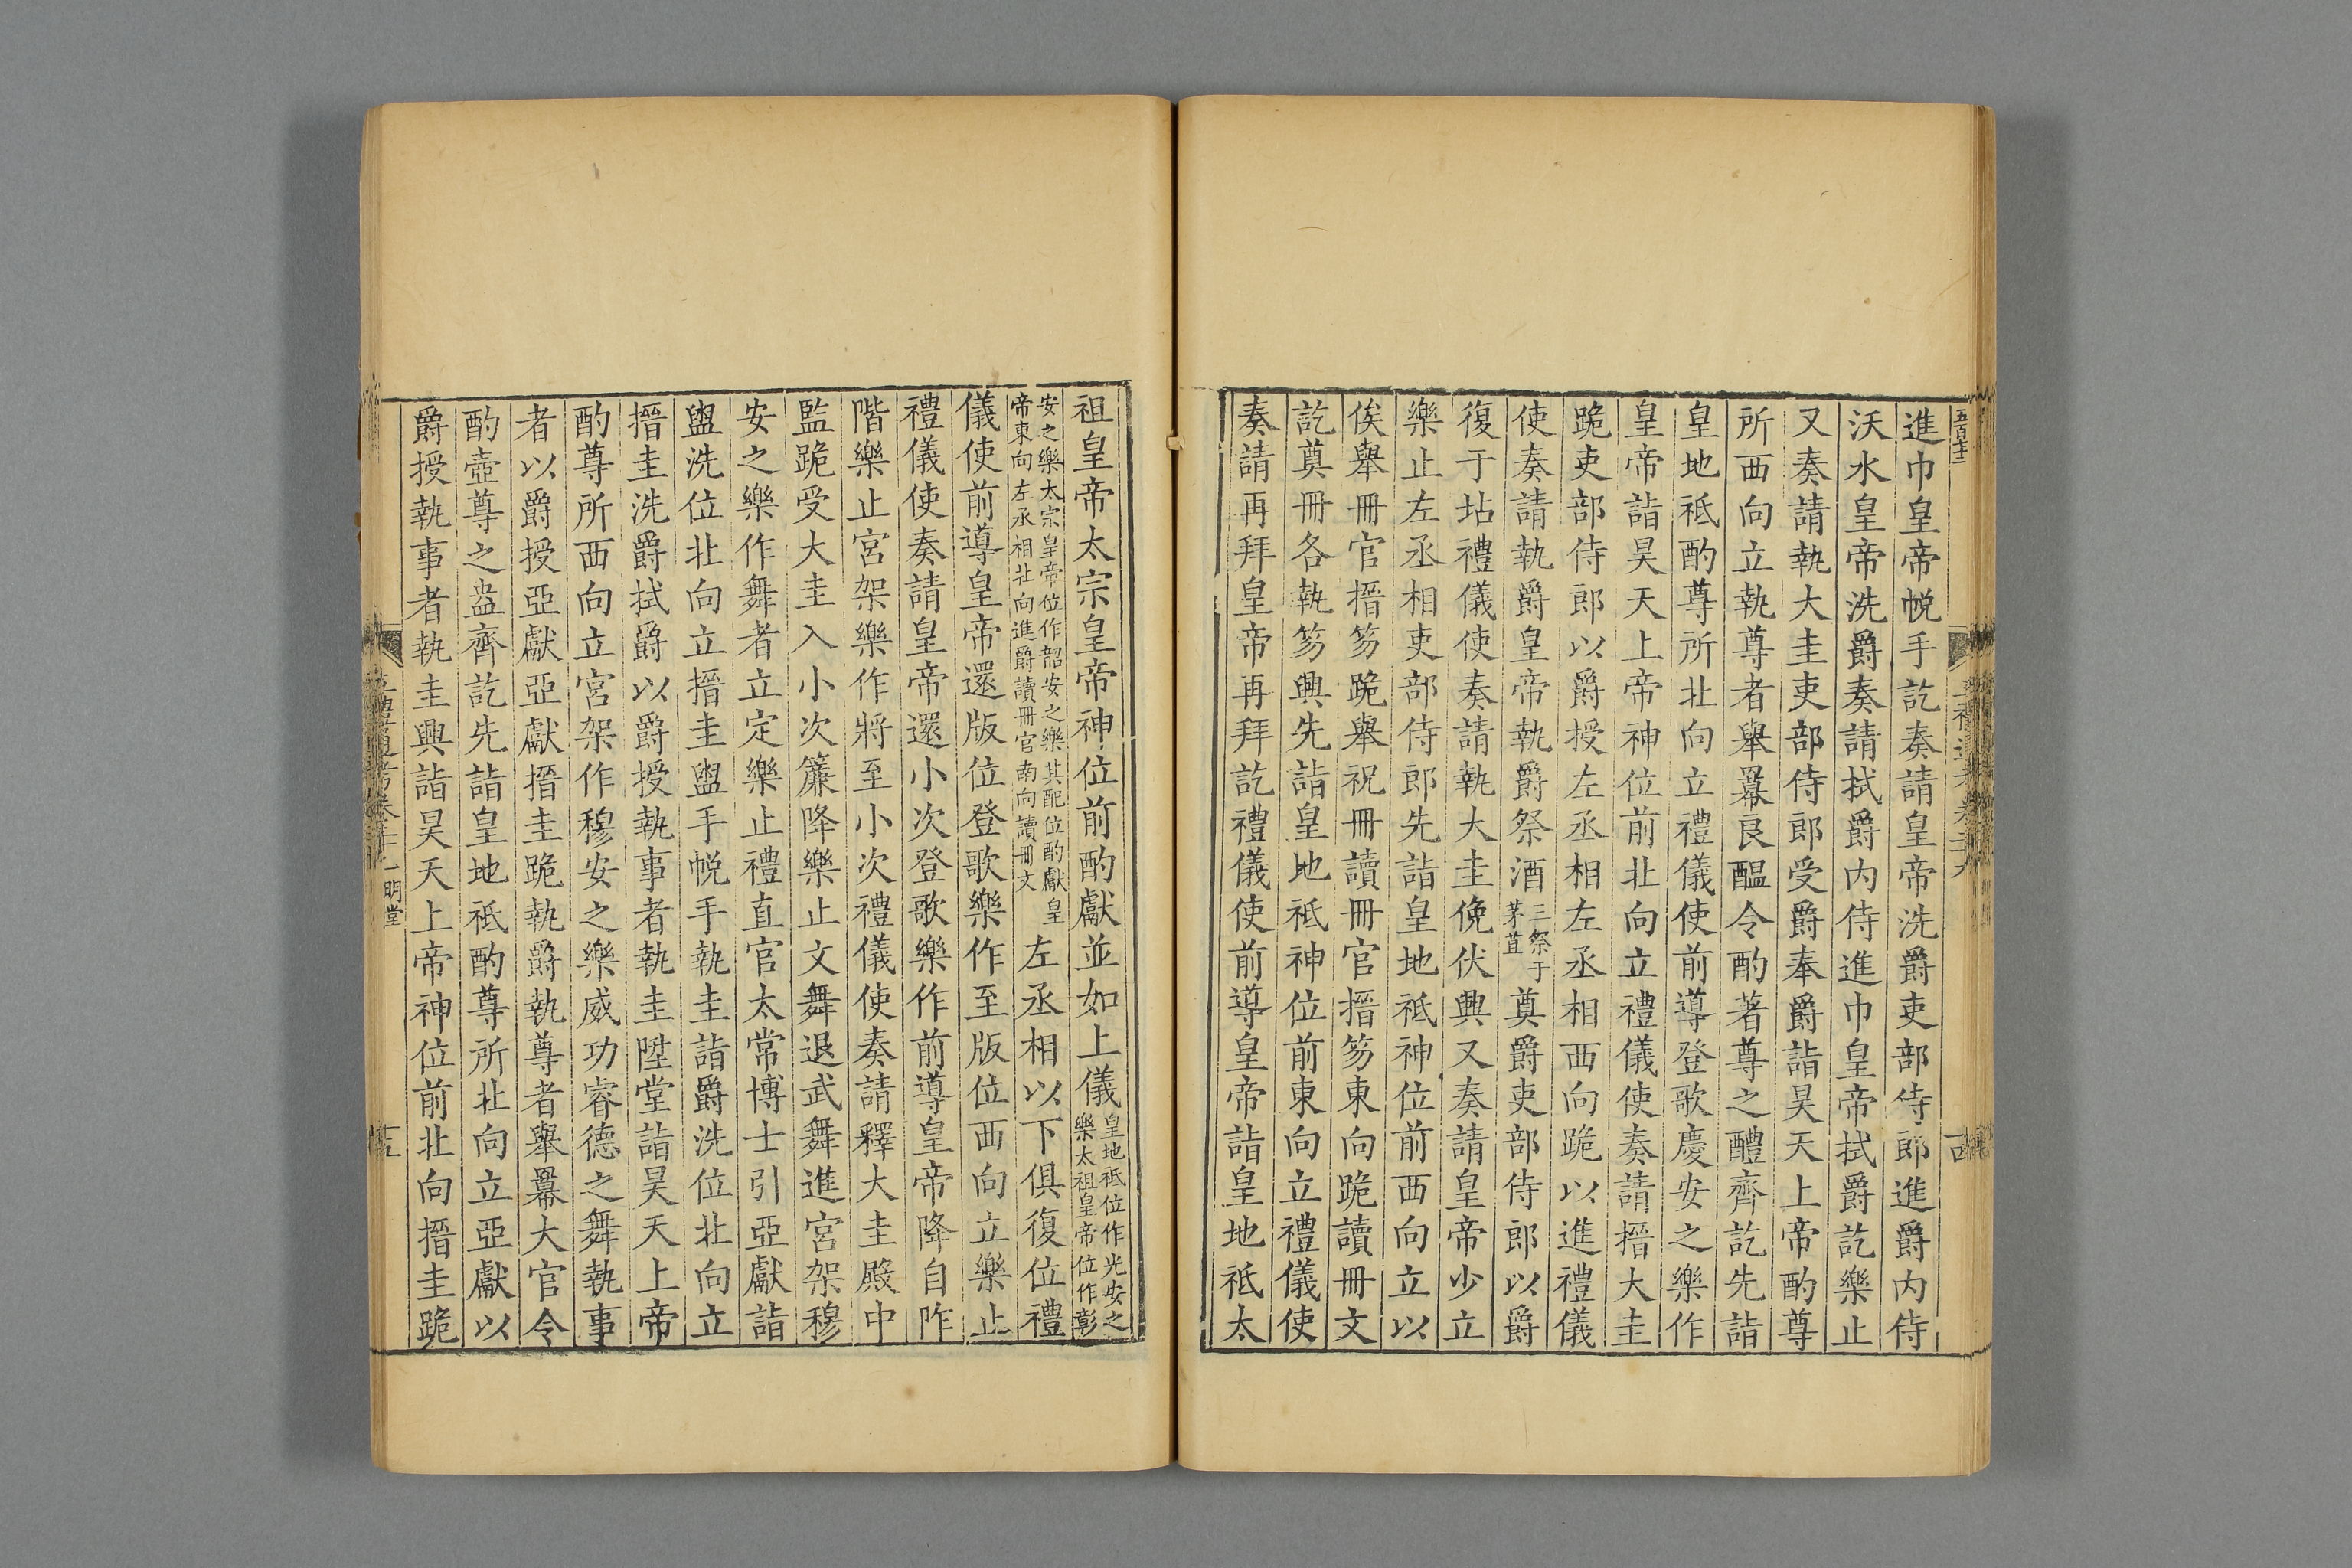 進巾皇帝帨手訖奏請皇帝洗爵吏部侍郎進爵内侍
沃水皇帝洗爵奏請拭爵内侍進巾皇帝拭爵訖樂止
又奏請執大圭吏部侍郎受爵奉爵詣昊天上帝酌尊
所西向立執尊者舉冪良醖令酌著尊之醴齊訖先詣
皇地祇酌尊所北向立禮儀使前導登歌慶安之樂作
皇帝詣昊天上帝神位前北向立禮儀使奏請搢大圭
跪吏部侍郎以爵授左丞相左丞相西向跪以進禮儀
使奏請執爵皇帝執爵祭酒三祭于茅苴奠爵吏部侍郎以爵
復于坫禮儀使奏請執大圭俛伏興又奏請皇帝少立
樂止左丞相吏部侍郎先詣皇地祇神位前西向立以
俟舉冊官搢笏跪舉祝冊讀冊官搢笏東向跪讀冊文
訖奠冊各執笏興先詣皇地祇神位前東向立禮儀使
奏請再拜皇帝再拜訖禮儀使前導皇帝詣皇地祇太
祖皇帝太宗皇帝神位前酌獻並如上儀皇地祇位作光安之樂太祖皇帝位作彰
安之樂太宗皇帝位作韶安之樂其配位酌獻皇帝東向左丞相北向進爵讀冊官南向讀冊文左丞相以下俱復位禮
儀使前導皇帝還版位登歌樂作至版位西向立樂止
禮儀使奏請皇帝還小次登歌樂作前導皇帝降自阼
階樂止宮架樂作將至小次禮儀使奏請釋大圭殿中
監跪受大圭入小次簾降樂止文舞退武舞進宮架穆
安之樂作舞者立定樂止禮直官太常博士引亞獻詣
盥洗位北向立搢圭盥手帨手執圭詣爵洗位北向立
搢圭洗爵拭爵以爵授執事者執圭陞堂詣昊天上帝
酌尊所西向立宮架作穆安之樂威功睿德之舞執事
者以爵授亞獻亞獻搢圭跪執爵執尊者舉冪大官令
酌壺尊之盎齊訖先詣皇地祇酌尊所北向立亞獻以
爵授執事者執圭興詣昊天上帝神位前北向搢圭跪
明堂